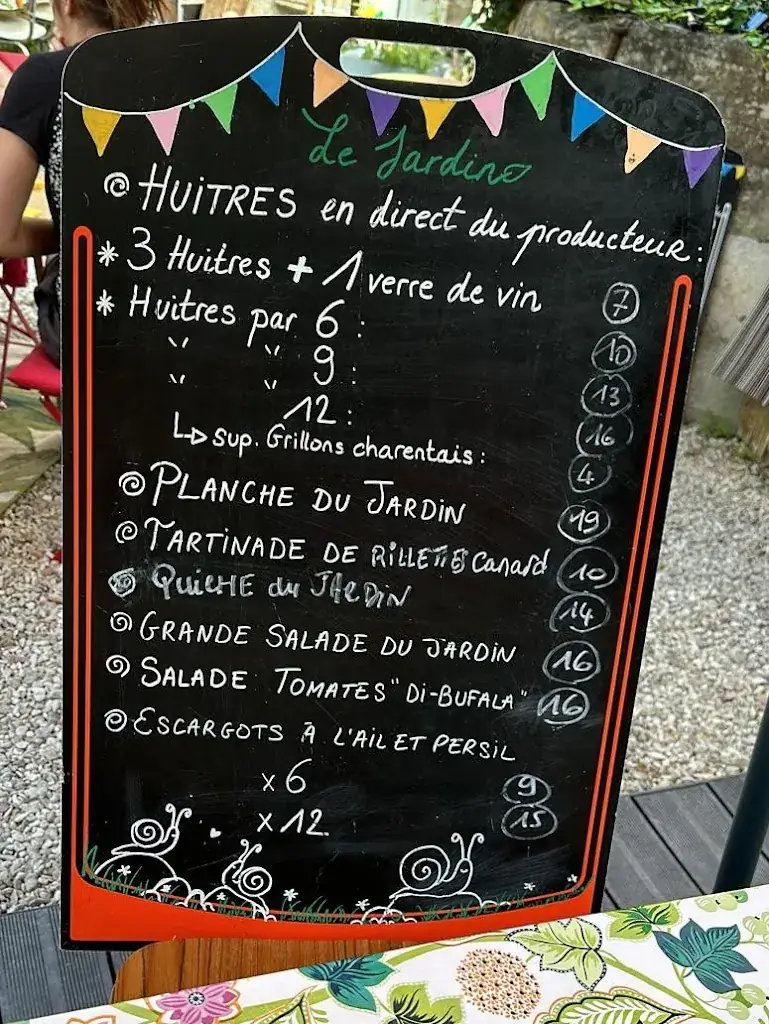 Le Jardin
HUITRES en direct du producteur :
* 3 Huitres + 1 verre de vin 7
* Huitres par 6 : 10
" " 9 : 13
" " 12 : 16
↳ sup. Grillons charentais : 4
PLANCHE DU JARDIN 19
TARTINADE DE RILLETTES Canard 10
QUICHE du JARDIN 14
GRANDE SALADE DU JARDIN 16
SALADE TOMATES "Di-BUFALA" 16
ESCARGOTS À L'AIL ET PERSIL
x 6 9
x 12 15